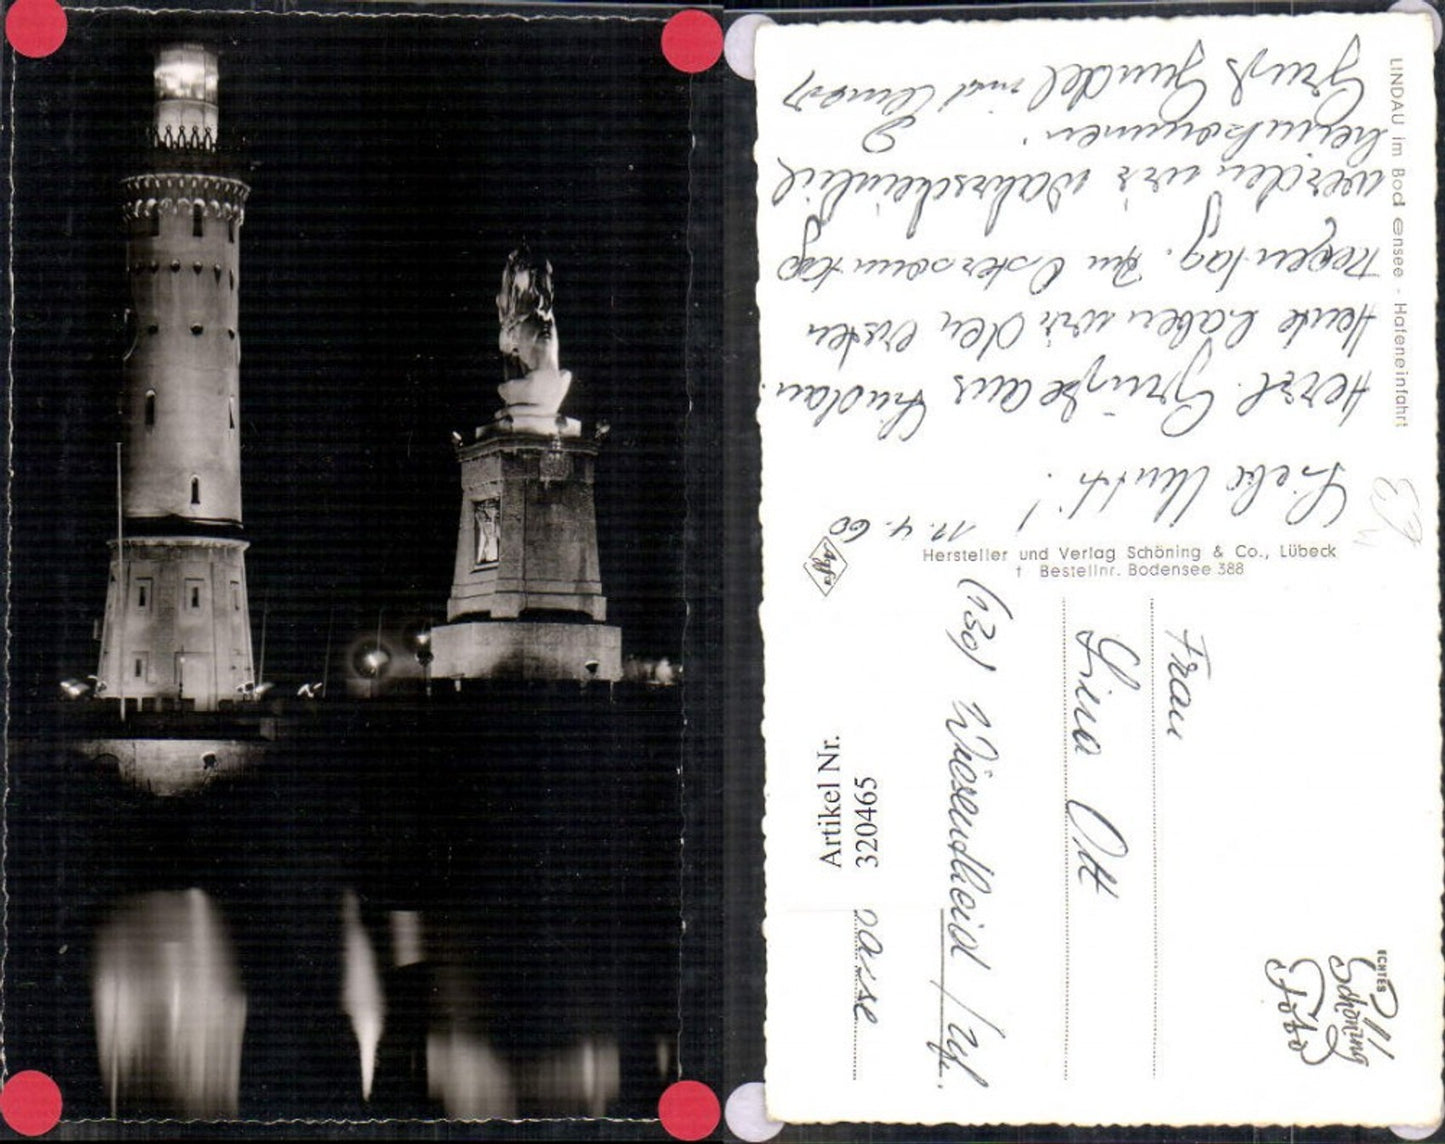 LINDAU im Bodensee - Hafeneinfahrt
11.4.60
Liebe Mutti!
Herzl. Grüße aus Lindau.
Heute haben wir den ersten
Regentag. Am Ostersonntag
werden wir wahrscheinlich
heimkommen.
Gruß Gundel und
Agfa
Hersteller und Verlag Schöning & Co., Lübeck
† Bestellnr. Bodensee 388
Frau
Lina Ott
(13a) Wiesentheid / Ufr.
ECHTES
Schöning
Foto
Artikel Nr.
320465